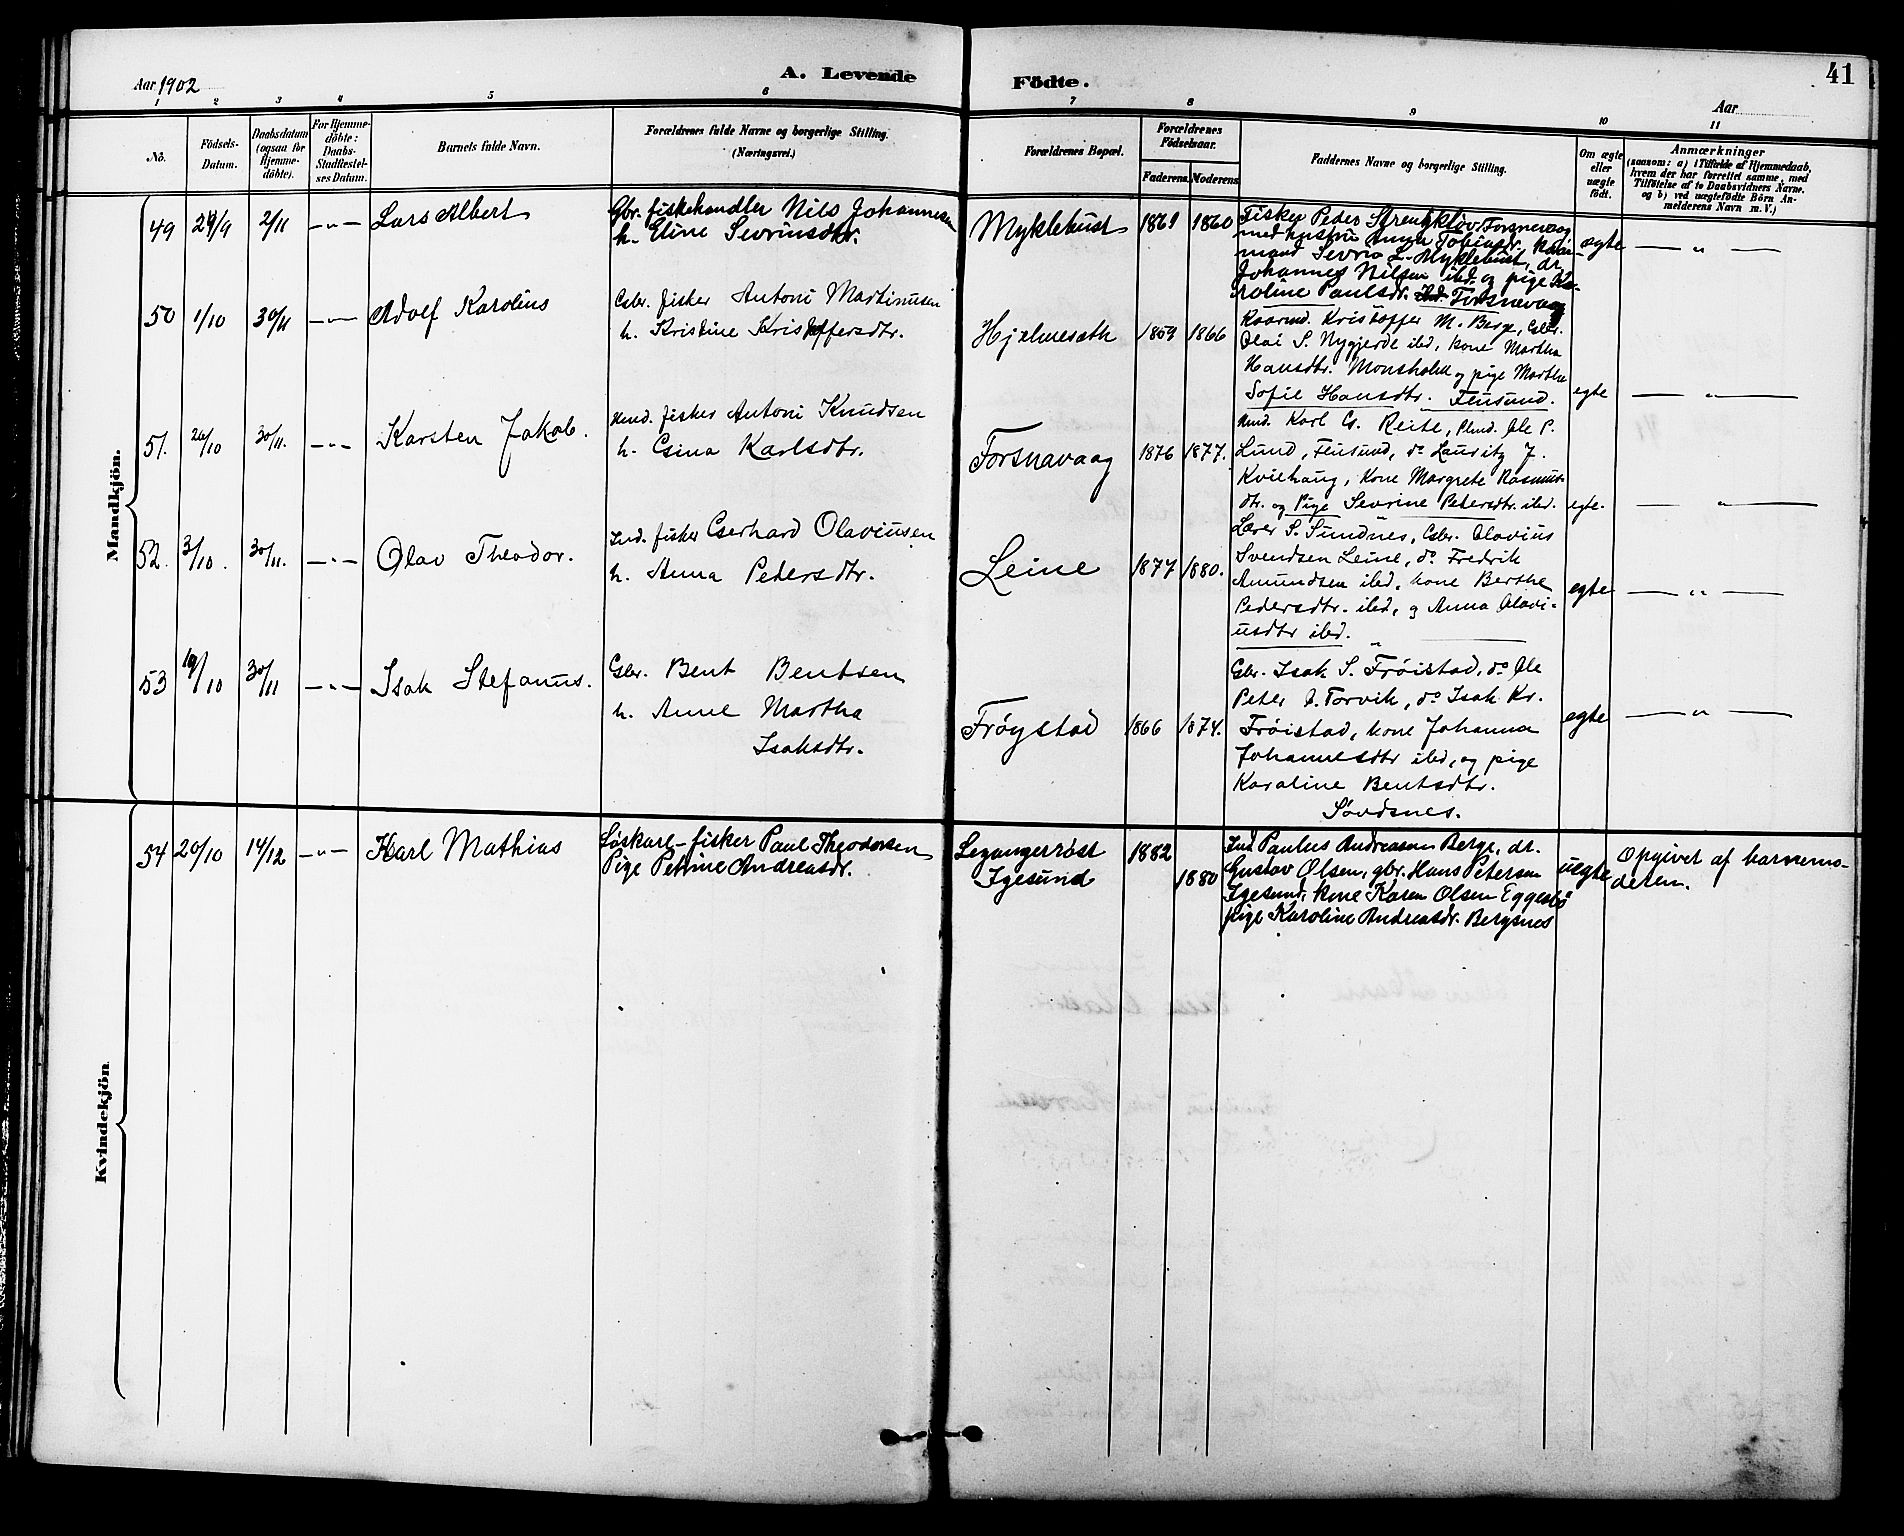 Aar 1902
A. Levende
Födte.
Aar
41
1 2 3 4 5 6 7 8 9 10 11
No.
Födsels-
Datum.
Daabsdatum
(ogsaa for
Hjemme-
döbte).
For Hjemme-
döbte:
Daabs-
Stadfæstel-
ses Datum.
Barnets fulde Navn.
Forældrenes fulde Navne og borgerlige Stilling.
(Næringsvei.)
Forældrenes Bopæl.
Forældrenes
Födselsaar.
Faderens. Moderens.
Faddernes Navne og borgerlige Stilling.
Om ægte
eller
uægte
födt.
Anmærkninger
(saasom: a) i Tilfælde af Hjemmedaab,
hvem der har forrettet samme, med
Tilföielse af to Daabsvidners Navne.
og b) ved uægtefödte Börn An-
melderens Navn m. V.)
Mandkjön.
49 29/9 2/11 — " — Lars Albert
Gbr. fiskehandler Nils Johannesen
h. Eline Sevrinsdtr.
Myklebust 1861 1860
Fisker Peder Forsnevaag
med hustru Tobiasdr.
mand Sevrin L. Myklebust, dr.
Johannes Nilsen ibd. og pige Ka-
roline Paulsdr. Forsnevaag
ægte — " —
50 1/10 30/11 — " — Adolf Karolius
Gbr. fisker Antoni Martinusen
h. Kristine Kristoffersdtr.
Hjelmesæth 1859 1866
Kaarmd. Kristoffer M. Berge, Gbr.
Olai S. Nygjerde ibd, kone Martha
Hansdtr. Monsholm og pige Martha
Sofie Hansdtr. Flusund.
egte — " —
51. 20/10 30/11. — " — Karsten Jakob.
Hmd. fisker Antoni Knudsen
h. Gsina Karlsdtr.
Forsnavaag 1876 1877.
Hmd. Karl G. Reite, Plmd. Ole P.
Lund, Flusund, do Lauritz J.
Kviehaug, kone Margrete Rasmus-
dtr. og Pige Sevrine Petersdtr. ibd.
egte. — " —
52. 3/10. 30/11. — " — Olav Theodor.
Ind. fisker Gerhard Olaviusen
h. Anna Pedersdtr.
Leine 1877 1880.
Lærer S. Sundnes, Gbr. Olavius
Svendsen Leine, do Fredrik
Amundsen ibd, kone Berthe
Pedersdtr. ibd, og Anna Olavi-
usdtr ibd.
egte — " —
53 19/10 30/11 — " — Isak Stefanus.
Gbr. Bent Bentsen
h. Anne Martha
Isaksdtr.
Fröystad 1866 1874.
Gbr. Isak S. Fröistad, do Ole
Peter O. Torvik, do Isak Kr.
Fröistad, kone Johanna
Johannesdtr ibd, og pige
Karaline Bentsdtr.
Sövdsnes.
egte — " —
Kvindekjön
54 20/10 14/12 — " — Karl Mathias
Löskarl-fisker Paul Theodorsen
Pige Petrine Andreasdr.
Leganger röst
Igesund
1882
1880
Ind Paulus Andreassen Berge, dr.
Gustav Olsen, gbr. Hans Petersen
Igesund, kone Karen Olsen Eggesbö
pige Karoline Andreasdr. Bergsnes
uegte
Opgivet af barnemo-
deren.